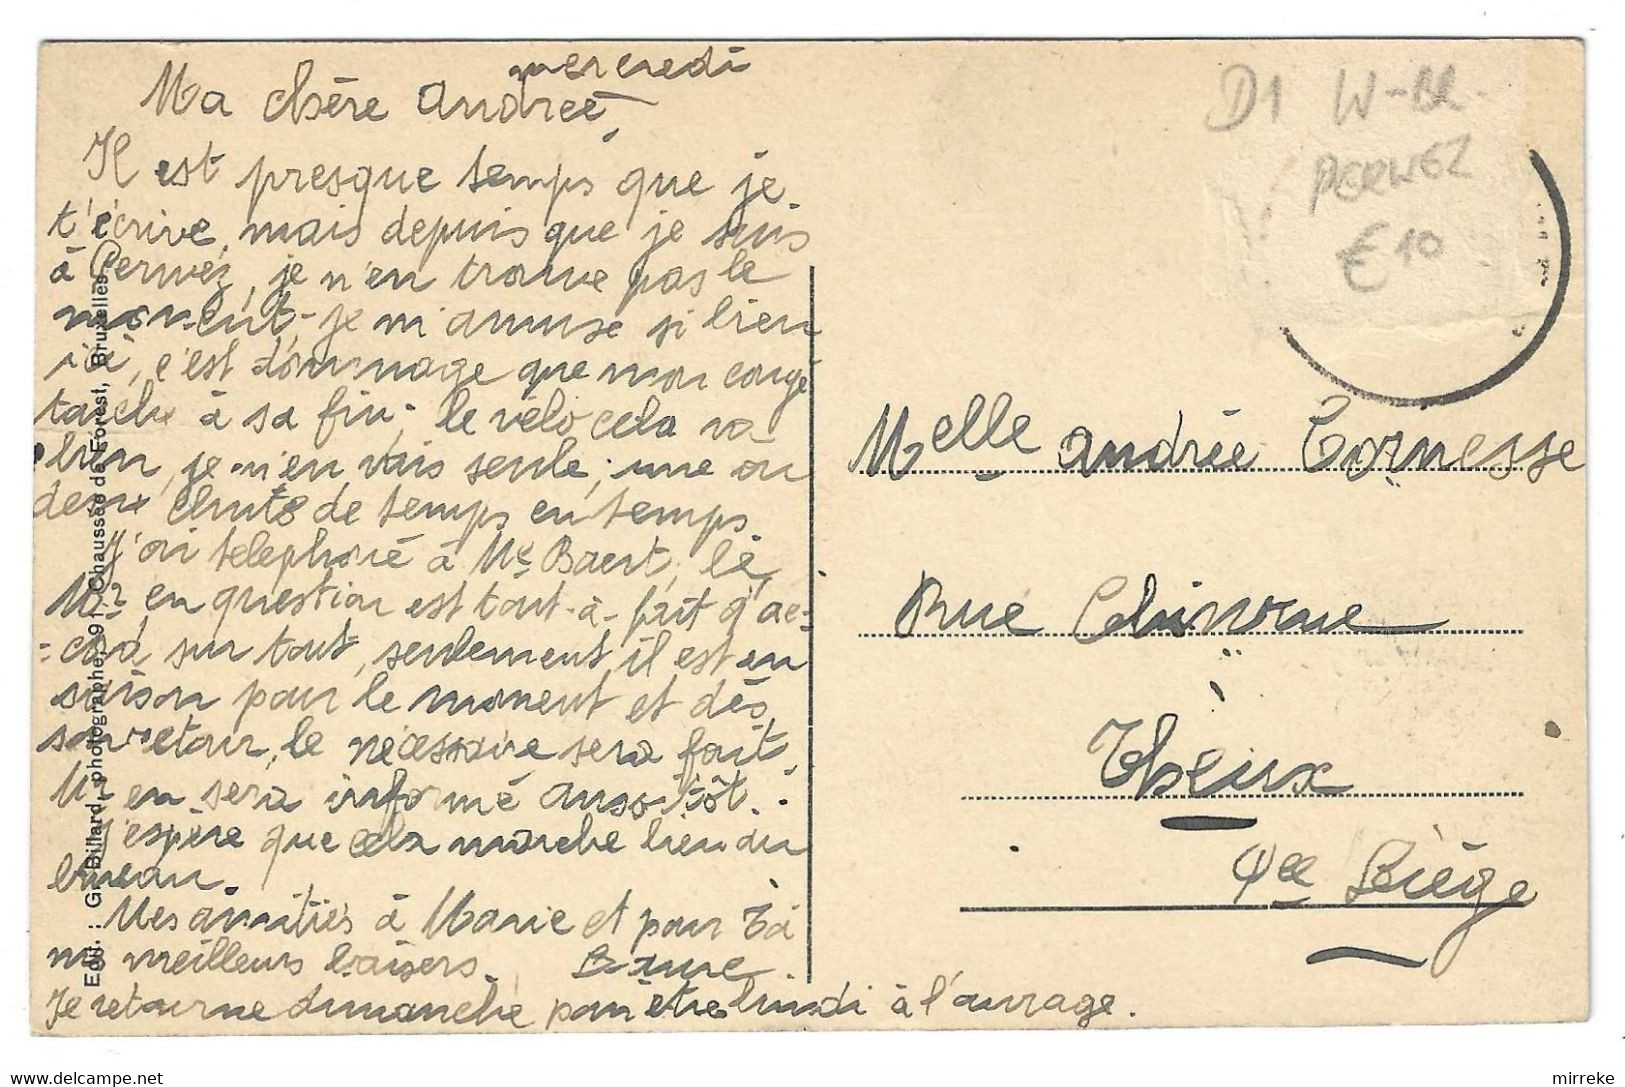 mercredi
Ma chère Andrée,
Il est presque temps que je
t'écrive, mais depuis que je suis
à Perwez, je n'en trouve pas le
moment, je m'amuse si bien
ici, c'est dommage que mon congé
touche à sa fin, le vélo cela va
bien, je m'en vais seule, une ou
deux chute de temps en temps.
J'ai telephoné à Mr Baert, le
Mr en question est tout-à-fait d'ac-
-cord sur tout, seulement, il est en
pour le moment et dès
son retour, le nécessaire sera fait.
Mr en sera informé aussitôt.
J'espère que cela marche bien au
bureau.
Mes amitiés à Marie et pour Toi
mes meilleurs baisers.
Je retourne dimanche peut être lundi à l'ouvrage.
Edit. : G. Billard, photographe, 91, Chaussée de Forest, Bruxelles
D1 W-BR-
PERWEZ
€ 10
Melle Andrée Cornesse
Rue Chinrue
Theux
Pce Liège
https://www.delcampe.net
mirreke